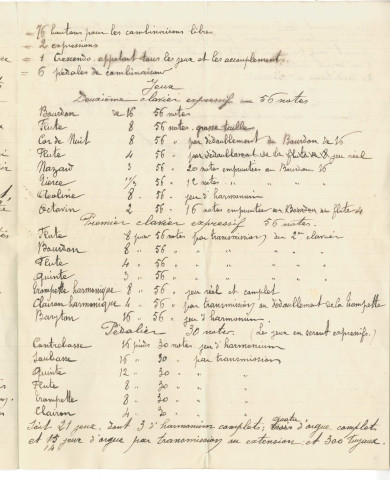 = 76 boutons pour les combinaisons libre
= 2 expressions
= 1 Crescendo, appelant tous les jeux et les accouplement
= 6 pédales de combinaison
Jeux
Deuxième clavier expressif = 56 notes
Bourdon de 16 56 notes
Flute 8 56 notes grosse taille
Cor de Nuit 8 56 " par dédoublement du Bourdon de 16
Flute 4 56 " par dédoublement de la flûte de 8 jeu réel
Nazard 3 56 " 20 notes empruntées au Bourdon 16
Tierce 56 " 12 notes " " "
Eoline 8 56 " jeu d'harmonium
Octavin 2 56 " 16 notes empruntées au Bourdon et flûte 4
Premier clavier expressif 56 notes.
Flute 8 pieds 56 notes par transmission du 2me clavier
Bourdon 8 " 56 " " " "
Flute 4 " 56 " " " "
Quinte 3 " 56 " " " "
Trompette harmonique 8 " 56 " jeu réel et complet
Clairon harmonique 4 " 56 " par transmission en dédoublement de la trompette
Baryton 16 " 56 " jeu d'harmonium.
Pédalier 30 notes. (Le jeux en seront expressifs.)
Contrebasse 16 pieds 30 notes jeu d'harmonium
Soubasse 16 " 30 " par transmission
Quinte 12 " 30 " "
Flute 8 " 30 " "
Trompette 8 " 30 " "
Clairon 4 " 30 " "
Soit 21 jeux, dont 3 d'harmonium complets; quatre trois d'orgue complets
et 15 14 jeux d'orgue par transmission ou extension; et 300 Tuyaux.